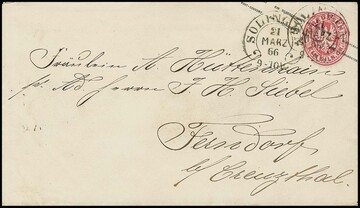 SOLINGEN
21
MARZ
66
9-10V
Fräulein A. Hüttenhain
pr. Ad Herrn J. H. Siebel
Ferndorf
b/ Creuzthal.